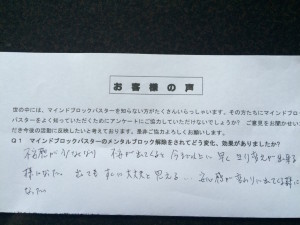 お客様の声
世の中には、マインドブロックバスターを知らない方がたくさんいらっしゃいます。その方たちにマインドブロック
バスターをよく知っていただくためにアンケートにご協力していただけないでしょうか？ ご意見をお聞かせいた
だき今後の活動に反映したいと考えております。是非ご協力よろしくお願いします。
Q1 マインドブロックバスターのメンタルブロック解除をされてどう変化、効果がありましたか？
不安感が少なくなり 不安が出てくると今まで以上に早く 切り替えが出来る
様になった。 出ても すぐに大丈夫と思える… 安心感が変わりに出てくる様に
なった